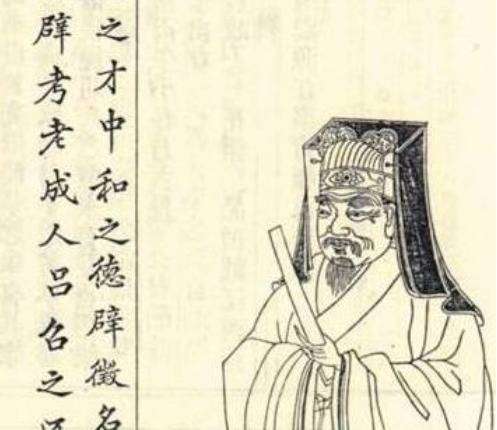 之才中和之德辟徵名
辟考老成人吕召之